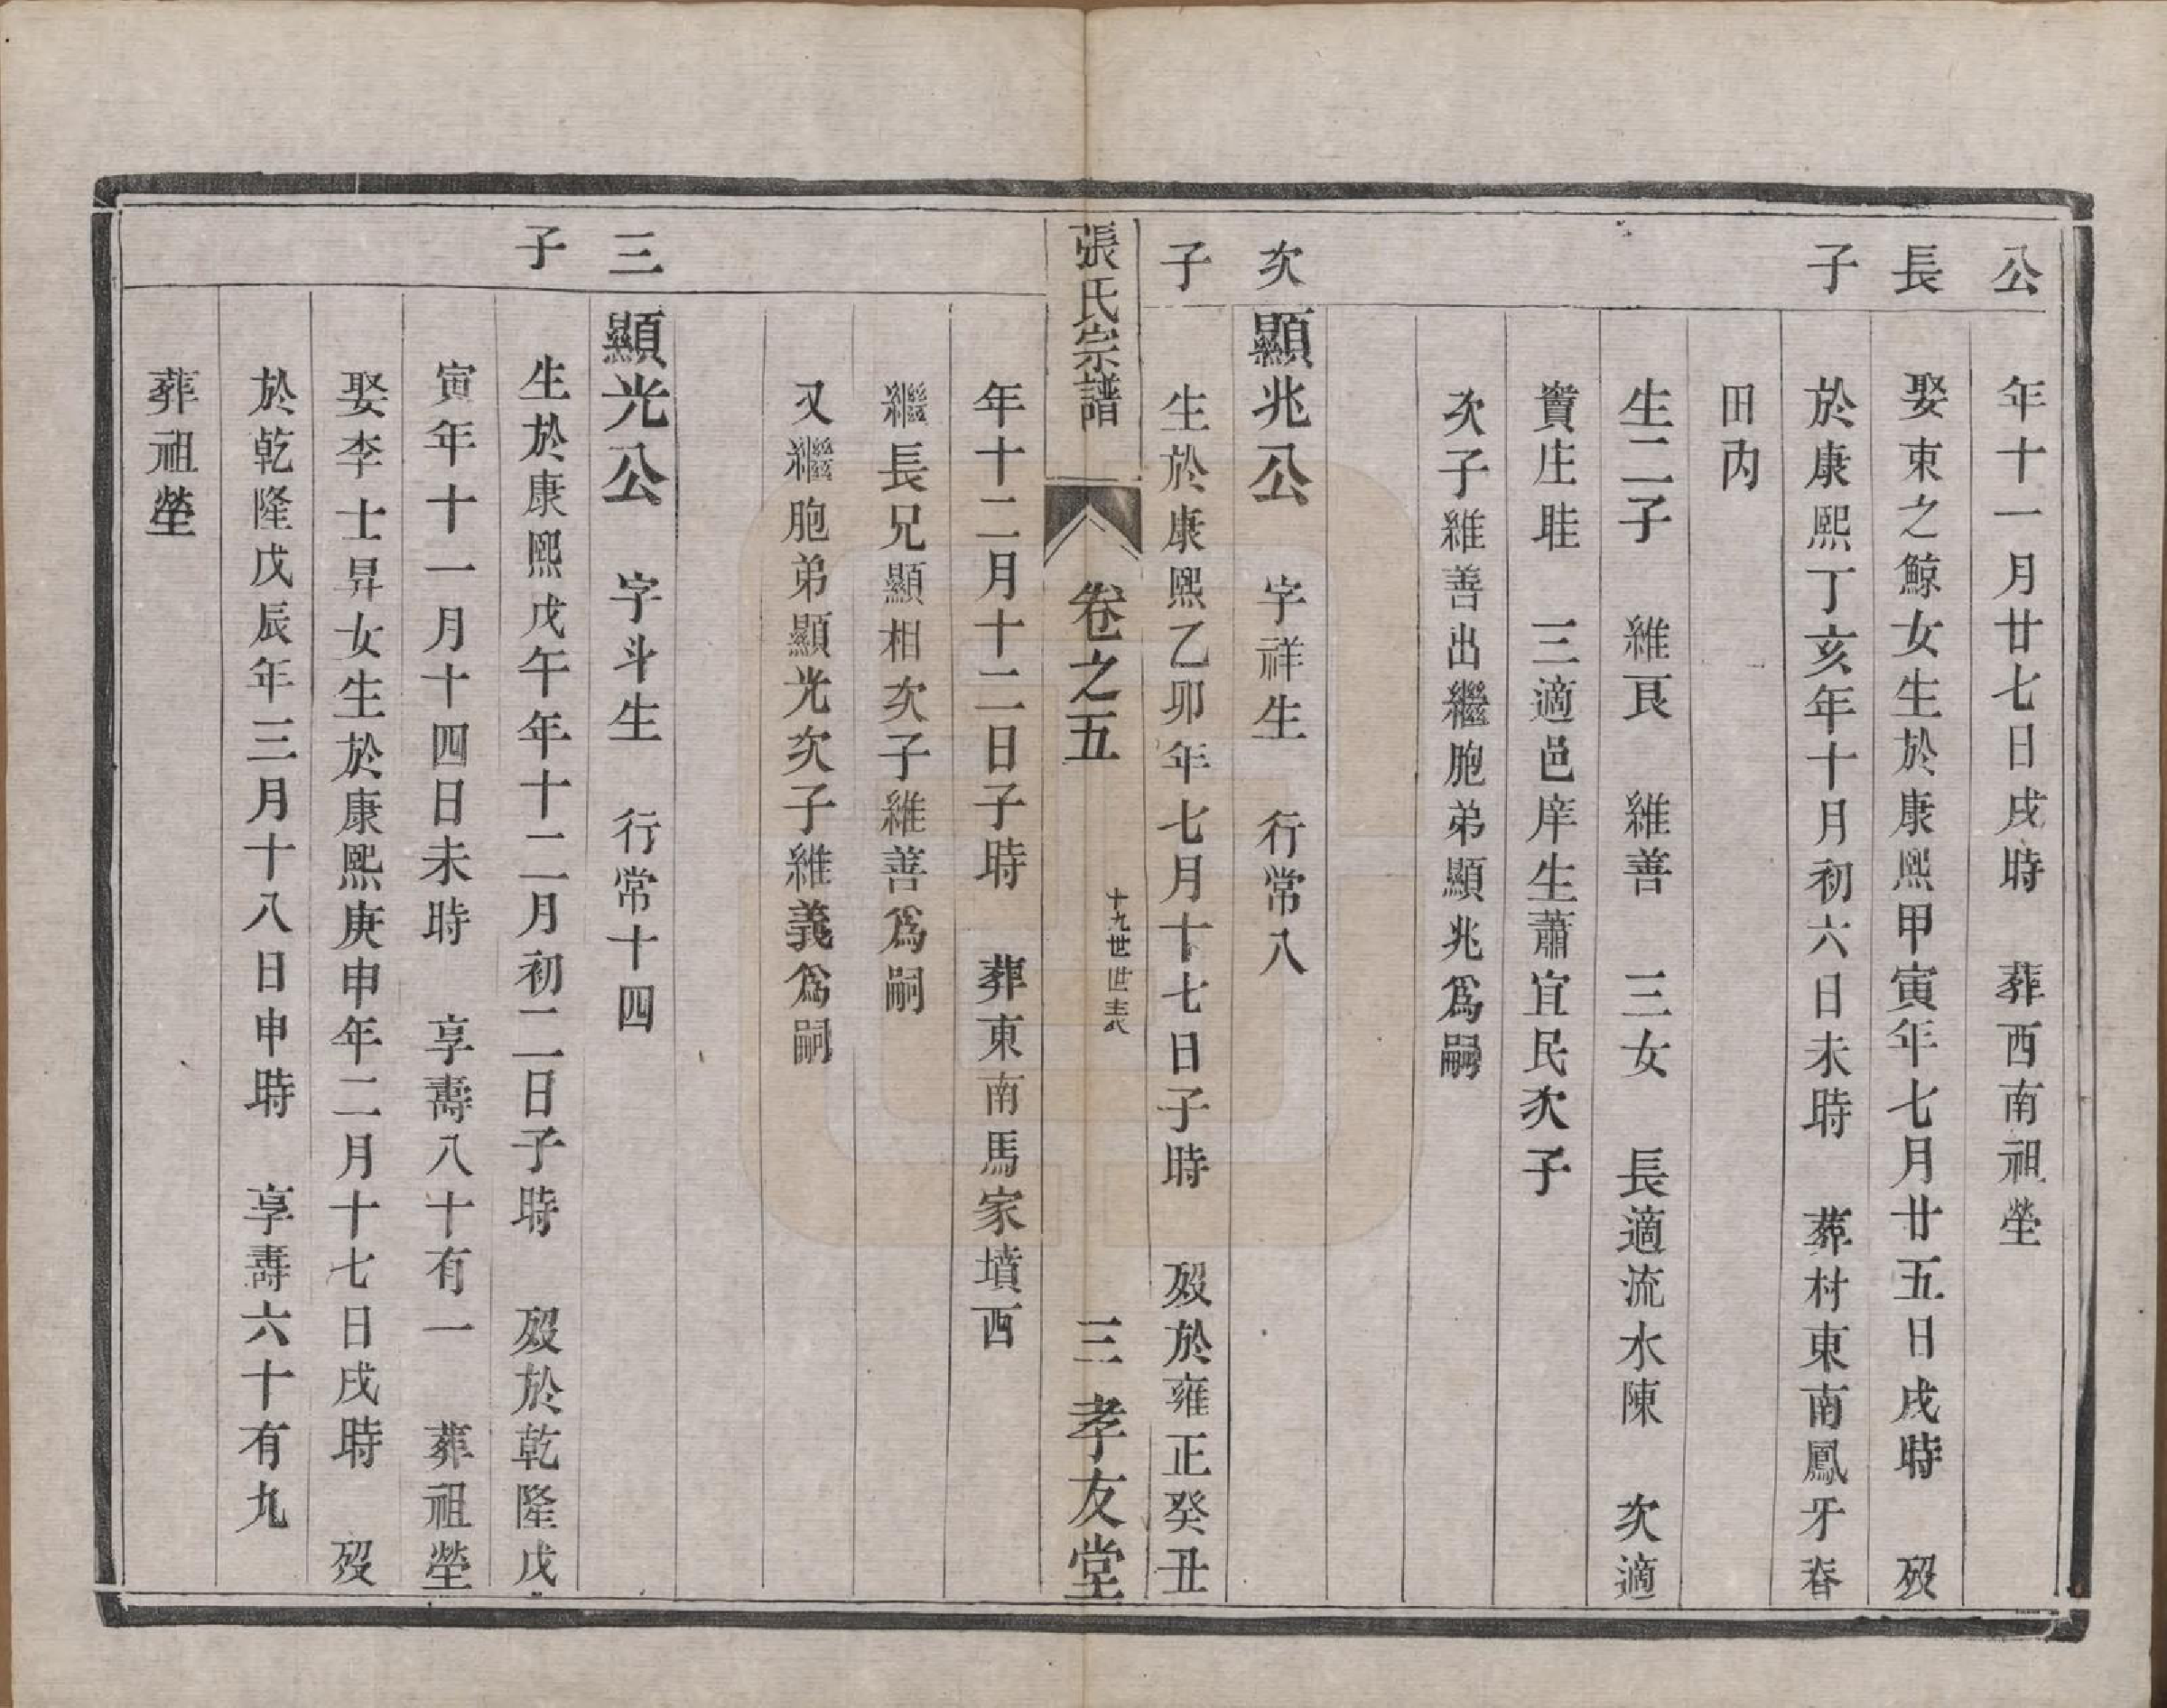 公 年十一月廿七日戌時 葬西南祖塋
長 娶東之鯨女生於康熙甲寅年七月廿五日戌時 歿
子 於康熙丁亥年十月初六日未時 葬村東南鳳牙春
田內
生二子 維良 維善 三女 長適流水陳 次適
竇庄眭 三適邑庠生蕭宜民次子
次子維善出繼胞弟顯兆爲嗣
次 顯兆公 字祥生 行常八
子 生於康熙乙卯年七月十七日子時 歿於雍正癸丑
張氏宗譜 卷之五 十九世世表 三 孝友堂
年十二月十二日子時 葬東南馬家墳西
繼長兄顯相次子維善爲嗣
又繼胞弟顯光次子維義爲嗣
三 顯光公 字斗生 行常十四
子 生於康熙戊午年十二月初二日子時 歿於乾隆戊
寅年十一月十四日未時 享壽八十有一 葬祖塋
娶李士昇女生於康熙庚申年二月十七日戌時 歿
於乾隆戊辰年三月十八日申時 享壽六十有九
葬祖塋